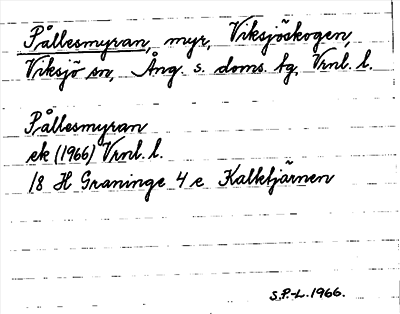 Pållesmyran, myr, Viksjöskogen,
Viksjö sn, Ång. s. doms. tg, Vrnl. l.
Pållesmyran
ek (1966) Vrnl. l.
18 H Graninge 4 e Kalktjärnen
S.P.-L. 1966.